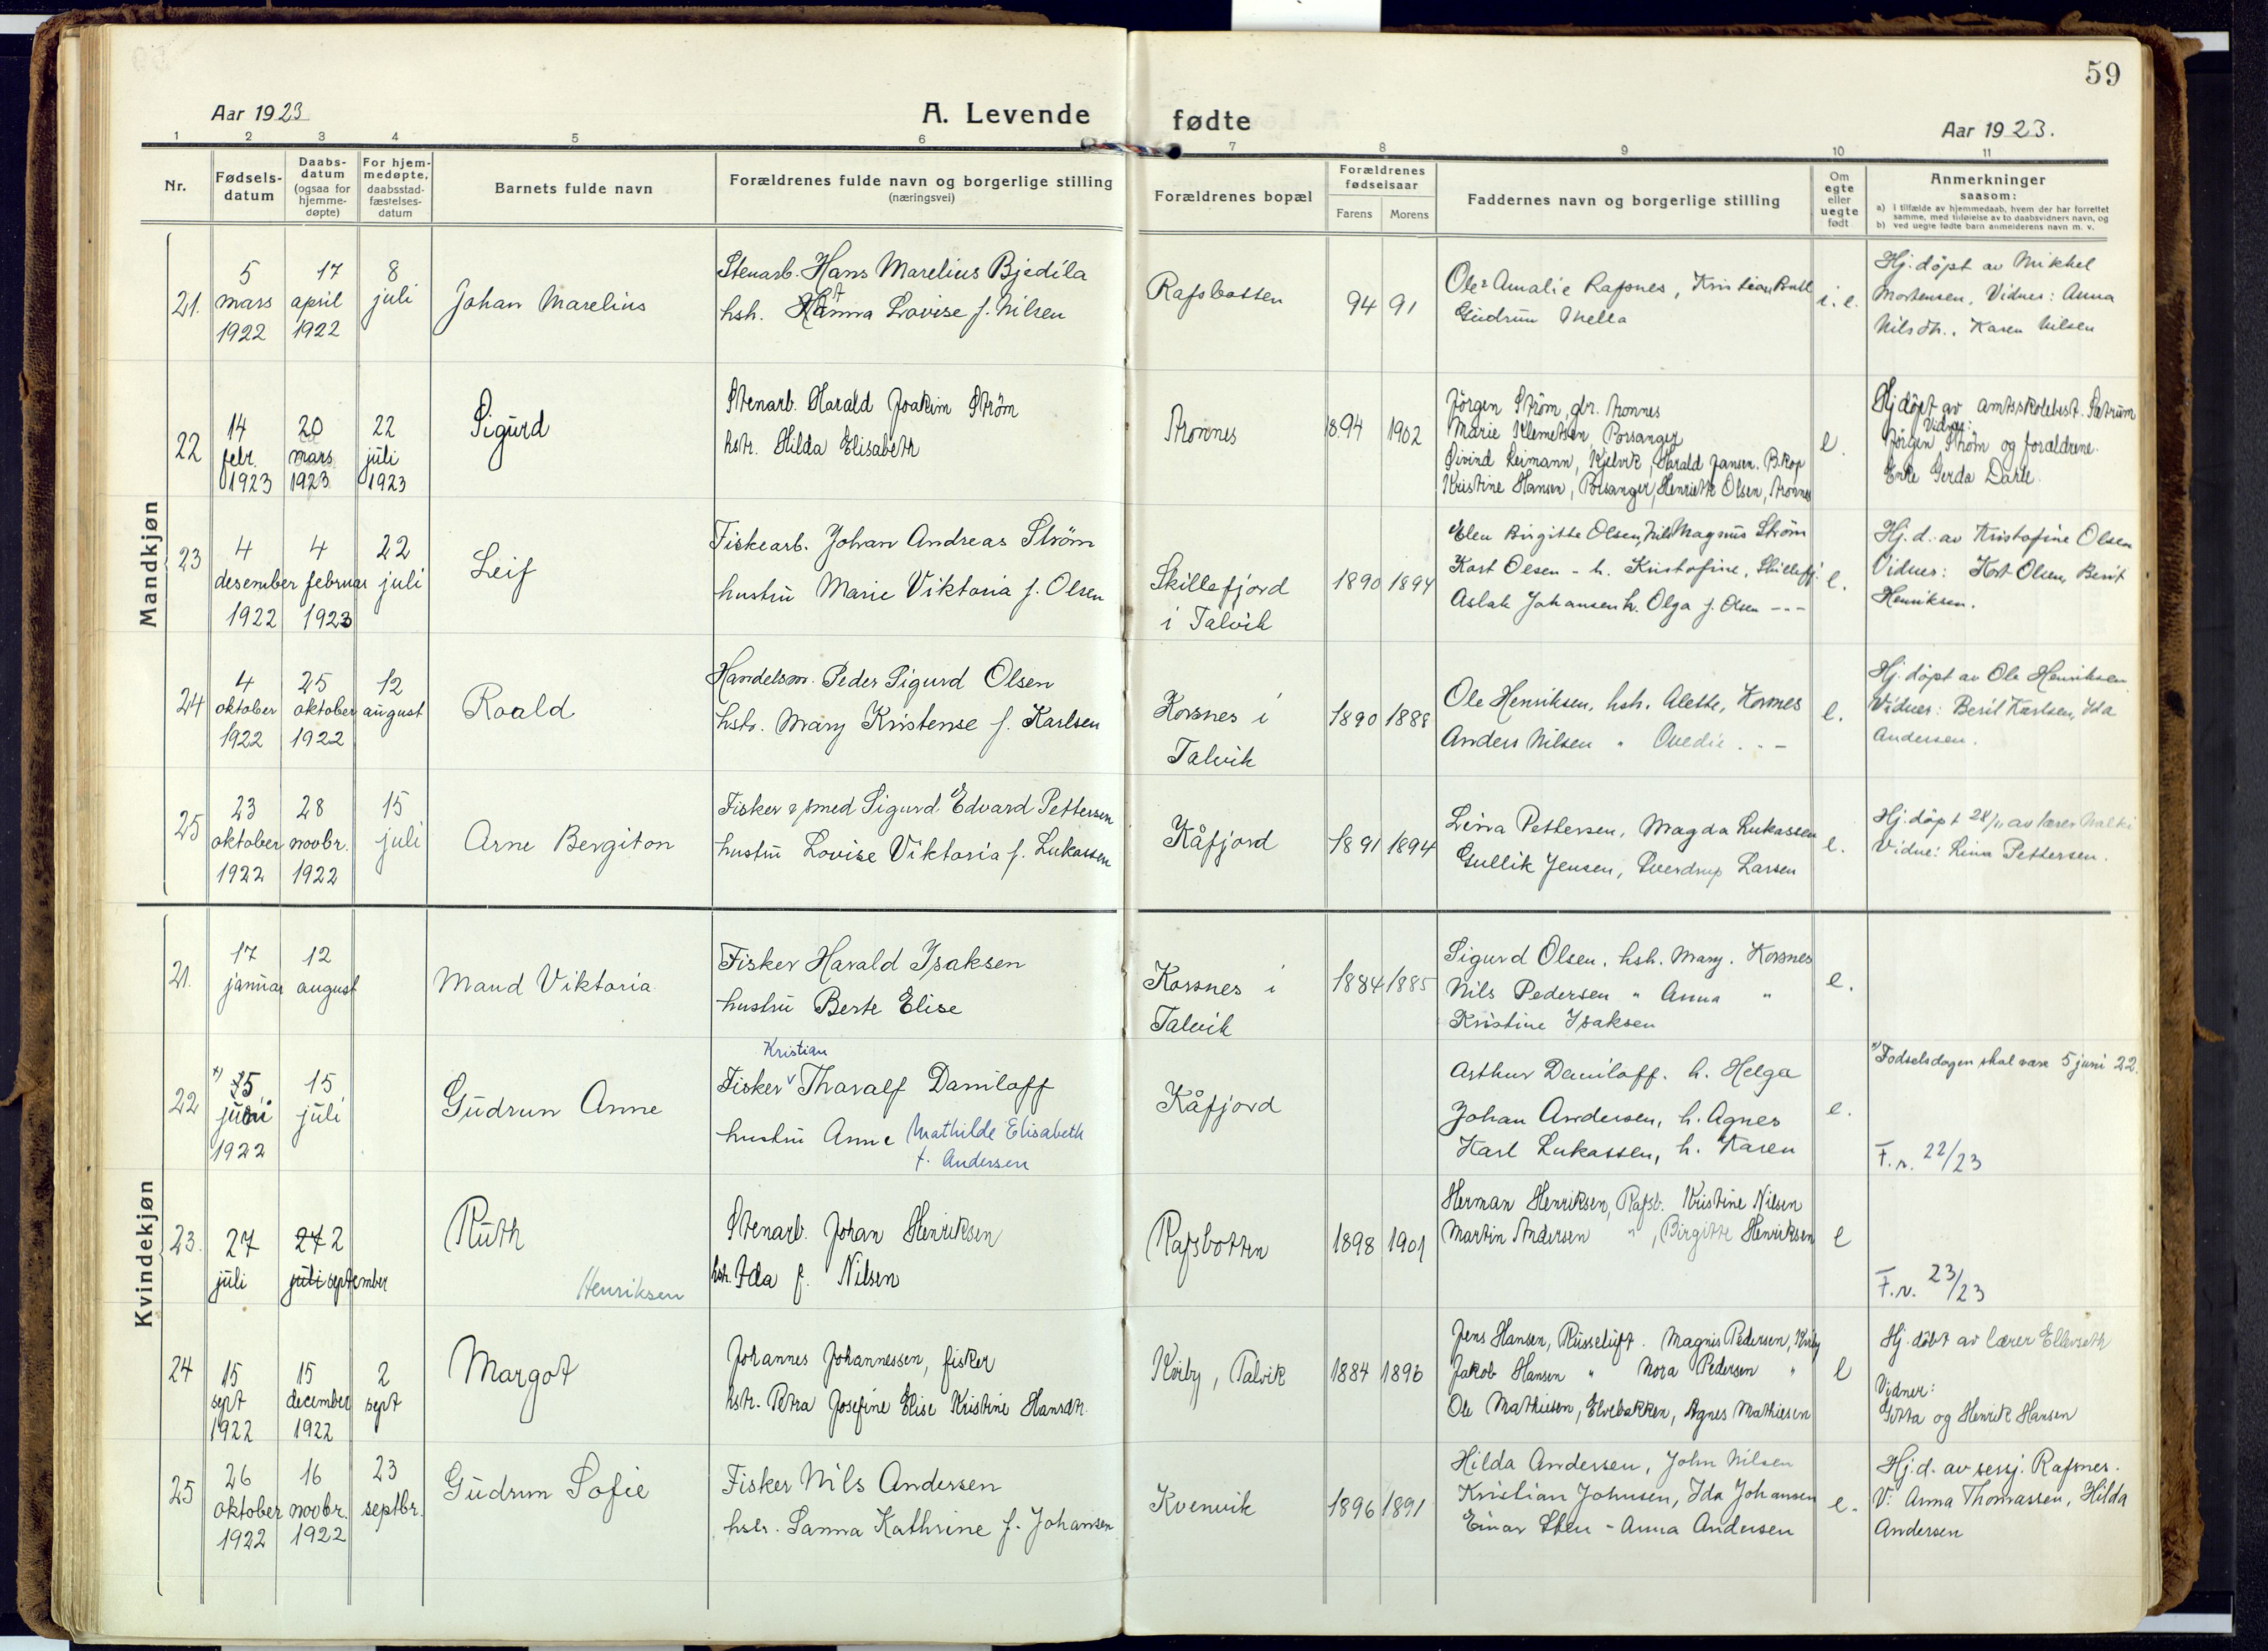 59
Aar 1923
A. Levende fødte
Aar 1923.
1 2 3 4 5 6 7 8 9 10 11
Nr.
Fødsels-
datum
Daabs-
datum
(ogsaa for
hjemme-
døpte)
For hjem-
medøpte,
daabsstad-
fæstelses-
datum
Barnets fulde navn
Forældrenes fulde navn og borgerlige stilling
(næringsvei)
Forældrenes bopæl
Forældrenes
fødselsaar
Farens Morens
Faddernes navn og borgerlige stilling
Om
egte
eller
uegte
født
Anmerkninger
saasom:
a) i tilfælde av hjemmedaab, hvem der har forrettet
samme, med tilføielse av to daabsvidners navn, og
b) ved uegte fødte barn anmelderens navn m. v.
Mandkjøn
21.
5
mars
1922
17
april
1922
8
juli
Johan Marelius
Stenarb. Hans Marelius Bjedila
hsh. Hanna Lovise f. Nilsen
Rafsbotten
94 91
Ole & Amalie Rafsnes, Kristian
Gudrun Thella
Hj. døpt av Mikkel
Mortensen, Vidner: Anna
Nilsdtr., Karen Nilsen
22
14
febr.
1923
20
mars
1923
22
juli
1923
Sigurd
Stenarb. Harald Joakim Strøm
hstr. Hilda Elisabeth
Aronnes
1894 1902
Jörgen Ström, gbr. Aronnes
Marie Klemetsen, Porsanger
Øivind Leimann, Kjelvik, Harald Jansen. B.kop
Kristine Hansen, Porsanger, Henriette Olsen, Aronnes
e.
Hjdöpt av amtsskolebest. Petrum
Vidner:
Jörgen Ström og foraldrene.
Enke Gerda Dahle.
23
4
desember
1922
4
februar
1923
22
juli
Leif
Fiskearb. Johan Andreas Strøm
hustru Marie Viktoria f. Olsen
Skillefjord
i Talvik
1890 1894
Elen Birgitte Olsen, Nils Magnus Strøm
Kort Olsen - h. Kristofine, Skillefj.
Aslak Johansen h. Olga f. Olsen - - -
e.
Hj. d. av Kristofine Olsen
Vidner: Kort Olsen, Berit
Henriksen.
24
4
oktober
1922
25
oktober
1922
12
august
Roald
Handelsm. Peder Sigurd Olsen
hstr. Mary Kristense f. Karlsen
Korsnes i
Talvik
1890 1888
Ole Henriksen, hsh. Alette, Korsnes
Anders Nilsen " Ovedie - -
e.
Hj. døpt av Ole Henriksen
Vidner: Berit Karlsen, Ida
Andersen.
25
23
oktober
1922
28
novbr.
1922
15
juli
Arne Bergiton
Fisker & smed Sigurd Edvard Pettersen
hustru Lovise Viktoria f. Lukassen
Kåfjord
1891 1894
Lina Pettersen, Magda Lukassen
Gullik Jensen, Sverdrup Larsen
e.
Hj. døpt 28/11 av lærer
Vidne: Lina Pettersen.
Kvindekjøn
21.
17
januar
12
august
Maud Viktoria
Fisker Harald Isaksen
hustru Berte Elise
Korsnes i
Talvik
1884 1885
Sigurd Olsen, hsh. Mary. Korsnes
Nils Pedersen " Anna "
Kristine Isaksen
e.
22
x) 5
juni
1922
15
juli
Gudrun Anne
Kristian
Fisker v Tharalf Daniloff
hustru Anne Mathilde Elisabeth
f. Andersen
Kåfjord
Arthur Daniloff. h. Helga
Johan Andersen, h. Agnes
Karl Lukassen, h. Karen
e.
x) Fødselsdagen skal være 5 juni 22.
F. r. 22/23
23.
27
juli
27 2
juli september
Ruth
Henriksen
Stenarb. Johan Henriksen
hstr. Ida f. Nilsen
Rafsbotten
1898 1901
Herman Henriksen, Rafsb. Kristine Nilsen
Martin Andersen " , Birgitte Henriksen
e
F. r. 23/23
24
15
sept
1922
15
december
1922
2
sept
Margot
Johannes Johannessen, fisker
hstr. Petra Josefine Elise Kristine Hansdtr.
Kviby, Talvik
1884 1896
Jens Hansen, Russeluft. Magnus Pedersen, Kviby
Jakob Hansen " Nora Pedersen "
Ole Mathiesen, Elvebakken, Agnes Mathiesen
e
Hj. döbt av lærer Ellevseth
Vidner:
Gitta og Henrik Hansen
25
26
oktober
1922
16
novbr.
1922
23
septbr.
Gudrun Sofie
Fisker Nils Andersen
hstr. Sanna Kathrine f. Johansen
Kvenvik
1896 1891
Hilda Andersen, John Nilsen
Kristian Johnsen, Ida Johansen
Einar Sten - Anna Andersen
e.
Hj. d. av sersj. Rafsnes.
V: Anna Thomassen, Hilda
Andersen